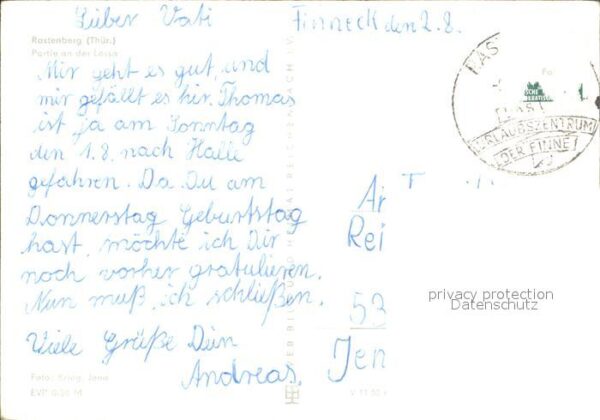 Lieber Vati
Finneck den 2.8.
Rastenberg (Thür.)
Partie an der Lossa
Mir geht es gut, und
mir gefällt es hir. Thomas
ist ja am Sonntag
den 1.8. nach Halle
gefahren. Da Du am
Donnerstag Geburtstag
hast, möchte ich Dir
noch vorher gratulieren.
Nun muß ich schließen.
Viele Grüße Dein
Andreas.
Foto: Krieg, Jena
URLAUBSZENTRUM
DER FINNE
Rei
53
Jen
privacy protection
Datenschutz